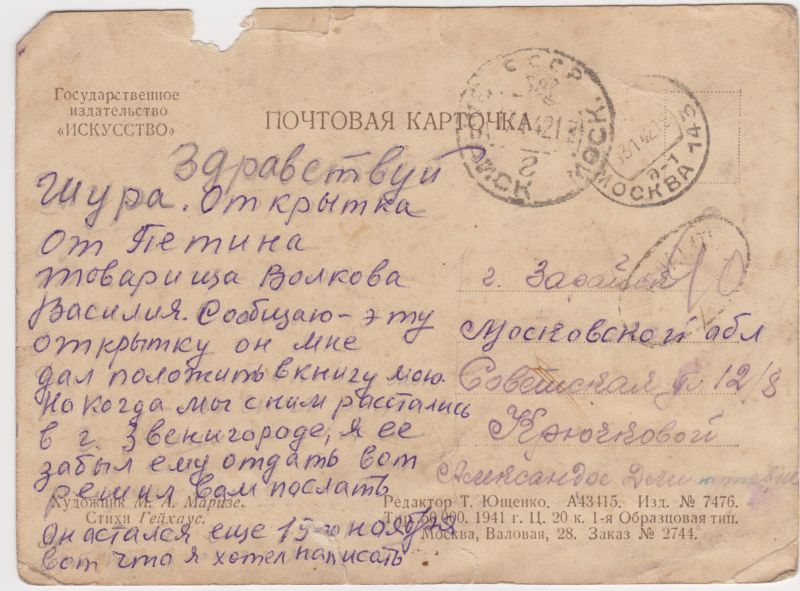 Государственное
издательство
«ИСКУССТВО»
ПОЧТОВАЯ КАРТОЧКА
СССР
МОСК
2
13 1 42 19
МОСКВА 74/3
Здравствуй
Шура. Открытка
от Петина
товарища Волкова
Василия. Сообщаю - эту
открытку он мне
дал положить в книгу мою.
Но когда мы с ним расстались
в г. Звенигороде, я ее
забыл ему отдать вот
решил вам послать
Он астался еще 15-го ноября
вот что я хотел написать
г. Зарайск
Московской обл
Советская 12/8
Крючковой
Александре
Художник М. А. Маризе.
Стихи Гейхаус.
Редактор Т. Ющенко. А43415. Изд. № 7476.
000. 1941 г. Ц. 20 к. 1-я Образцовая тип.
Москва, Валовая, 28. Заказ № 2744.